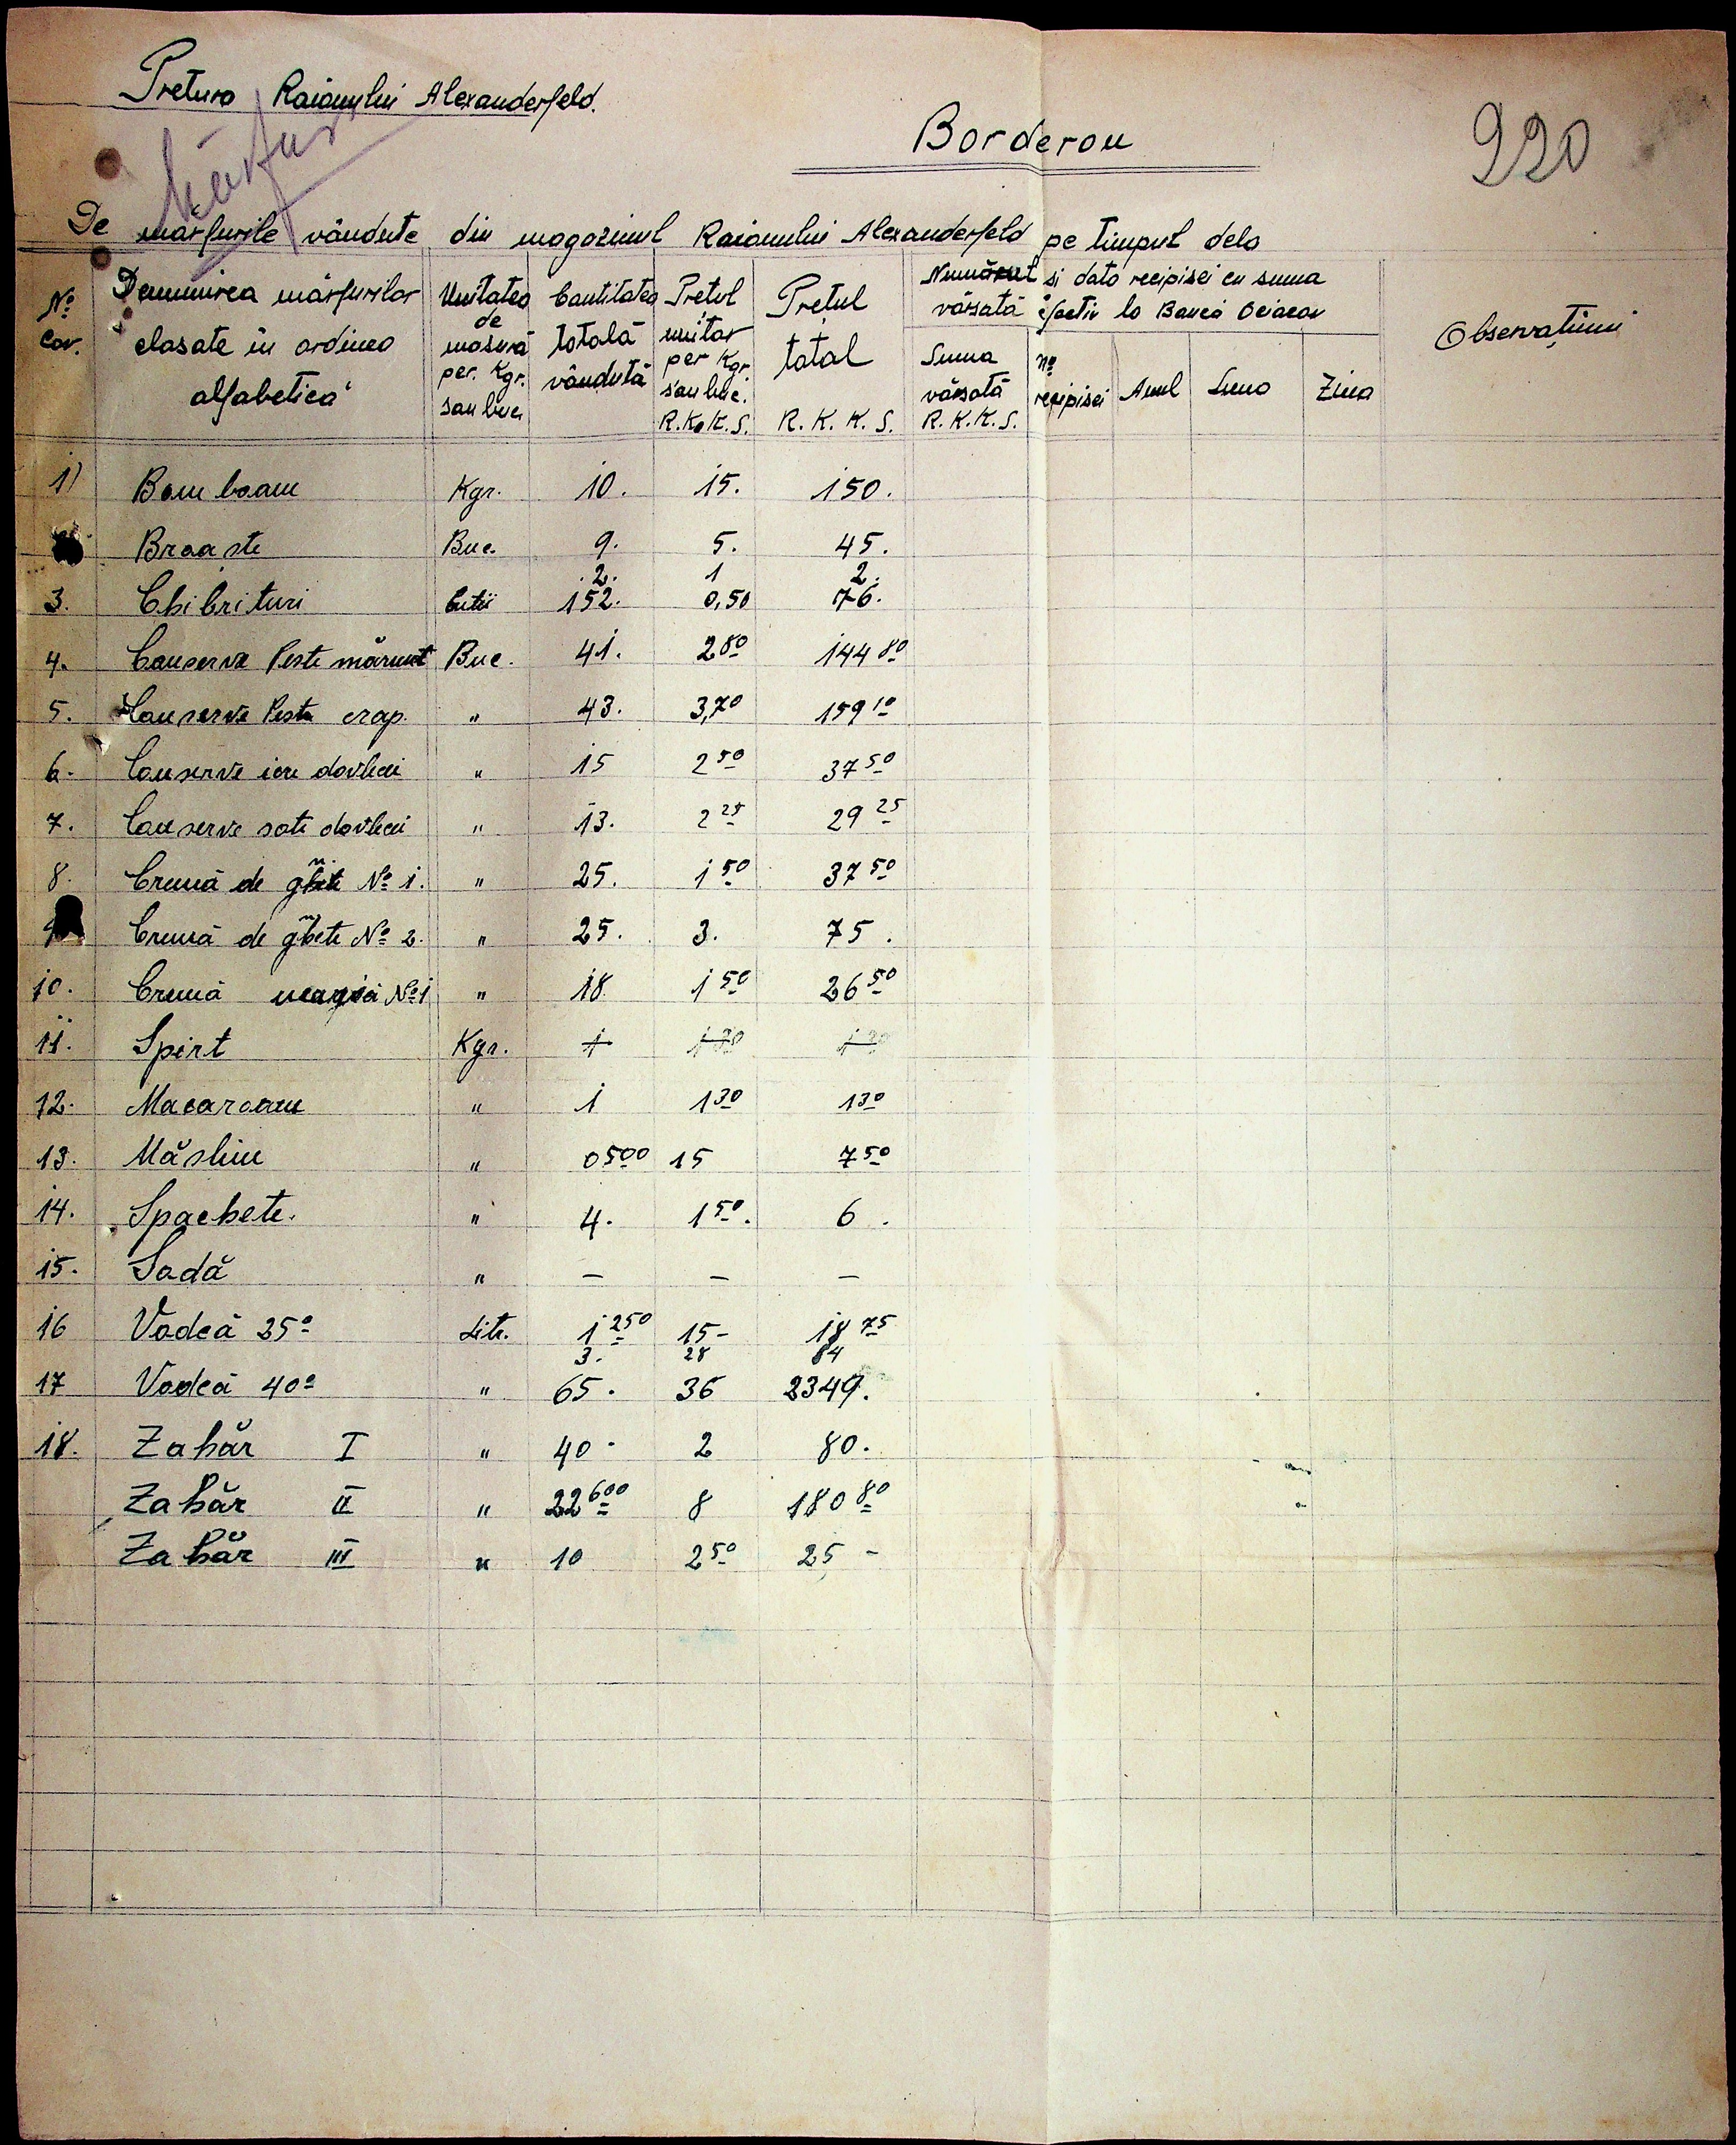 Pretura Raionului Alexanderfeld.
220
Borderou
De mărfurile vândute din magazinul Raionului Alexanderfeld pe timpul dela
No cor. Denumirea mărfurilor clasate în ordinea alfabetică Unitatea de masură per. Kgr. sau buc Cantitatea totală vândută Prețul unitar per Kgr sau buc. R.K.K.S. Prețul total R.K.K.S. Numărul si data recipisei cu suma vărsată efectiv la Banca Oceacov Observațiuni
Suma vărsată R.K.K.S. No recipisei Anul Luna Ziua
1) Bomboane Kgr. 10. 15. 150.
Broaște Buc. 9. 5. 45.
2. 1 2.
3. Chibrituri Cutii 152. 0,50 76.
4. Conserve Peste mărunt Buc. 41. 2 80 144 80
5. Conserve Peste crap. " 43. 3,70 159 10
6. Conserve icre dovlecei " 15 2 50 37 50
7. Conserve sote dovlecei " 13. 2 25 29 25
8. Cremă de ghete No 1. " 25. 1 50 37 50
9 Cremă de ghete No 2. " 25. 3. 75.
10. Cremă neagră No 1 " 18. 1 50 26 50
11. Spirt Kgr. 1
12. Macaroane " 1 1 30 1 30
13. Măsline " 0500 15 7 50
14. Spachete. " 4. 1 50. 6.
15. Sodă " — — —
16 Vodcă 25o Litr. 1 250 15- 18 75
3. 28 84
17 Vodcă 40o " 65. 36 2349.
18. Zahăr I " 40- 2 80.
Zahăr II " 22 600 8 180 80
Zahăr III " 10 2 50 25 -